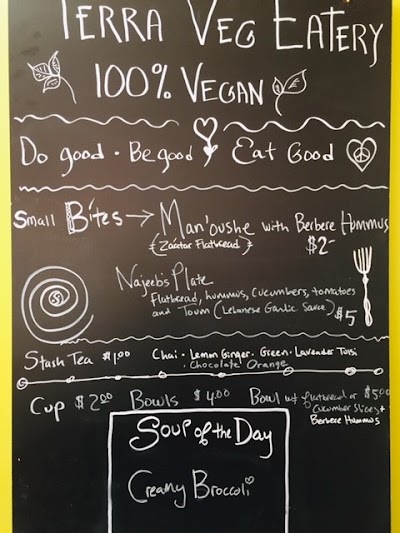 TERRA VEG EATERY
100% VEGAN
Do good · Be good Eat Good
Small Bites → Man'oushe with Berbere Hummus
(Zaatar Flatbread) $2-
Najeeb's Plate
Flatbread, hummus, cucumbers, tomatoes
and Toum (Lebanese Garlic Sauce) $5
Stash Tea $1.00 Chai · Lemon Ginger · Green · Lavender Tulsi
· Chocolate Orange
Cup $2.00 Bowls $4.00 Bowl w/ flatbread or $5.00
Cucumber Slices +
Berbere Hummus
Soup of the Day
Creamy Broccoli